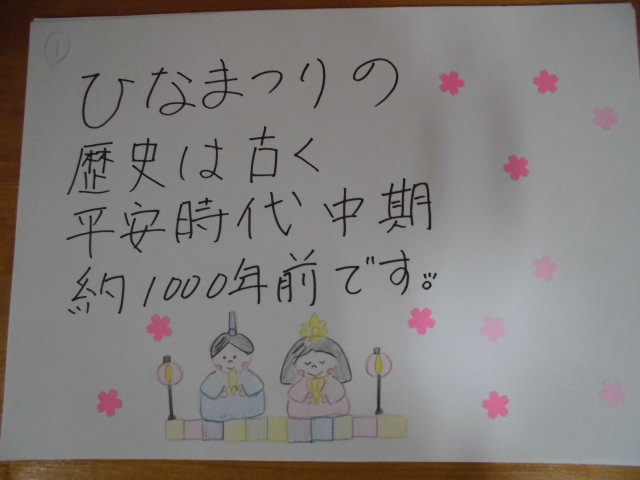 ①
ひなまつりの
歴史は古く
平安時代中期
約1000年前です。